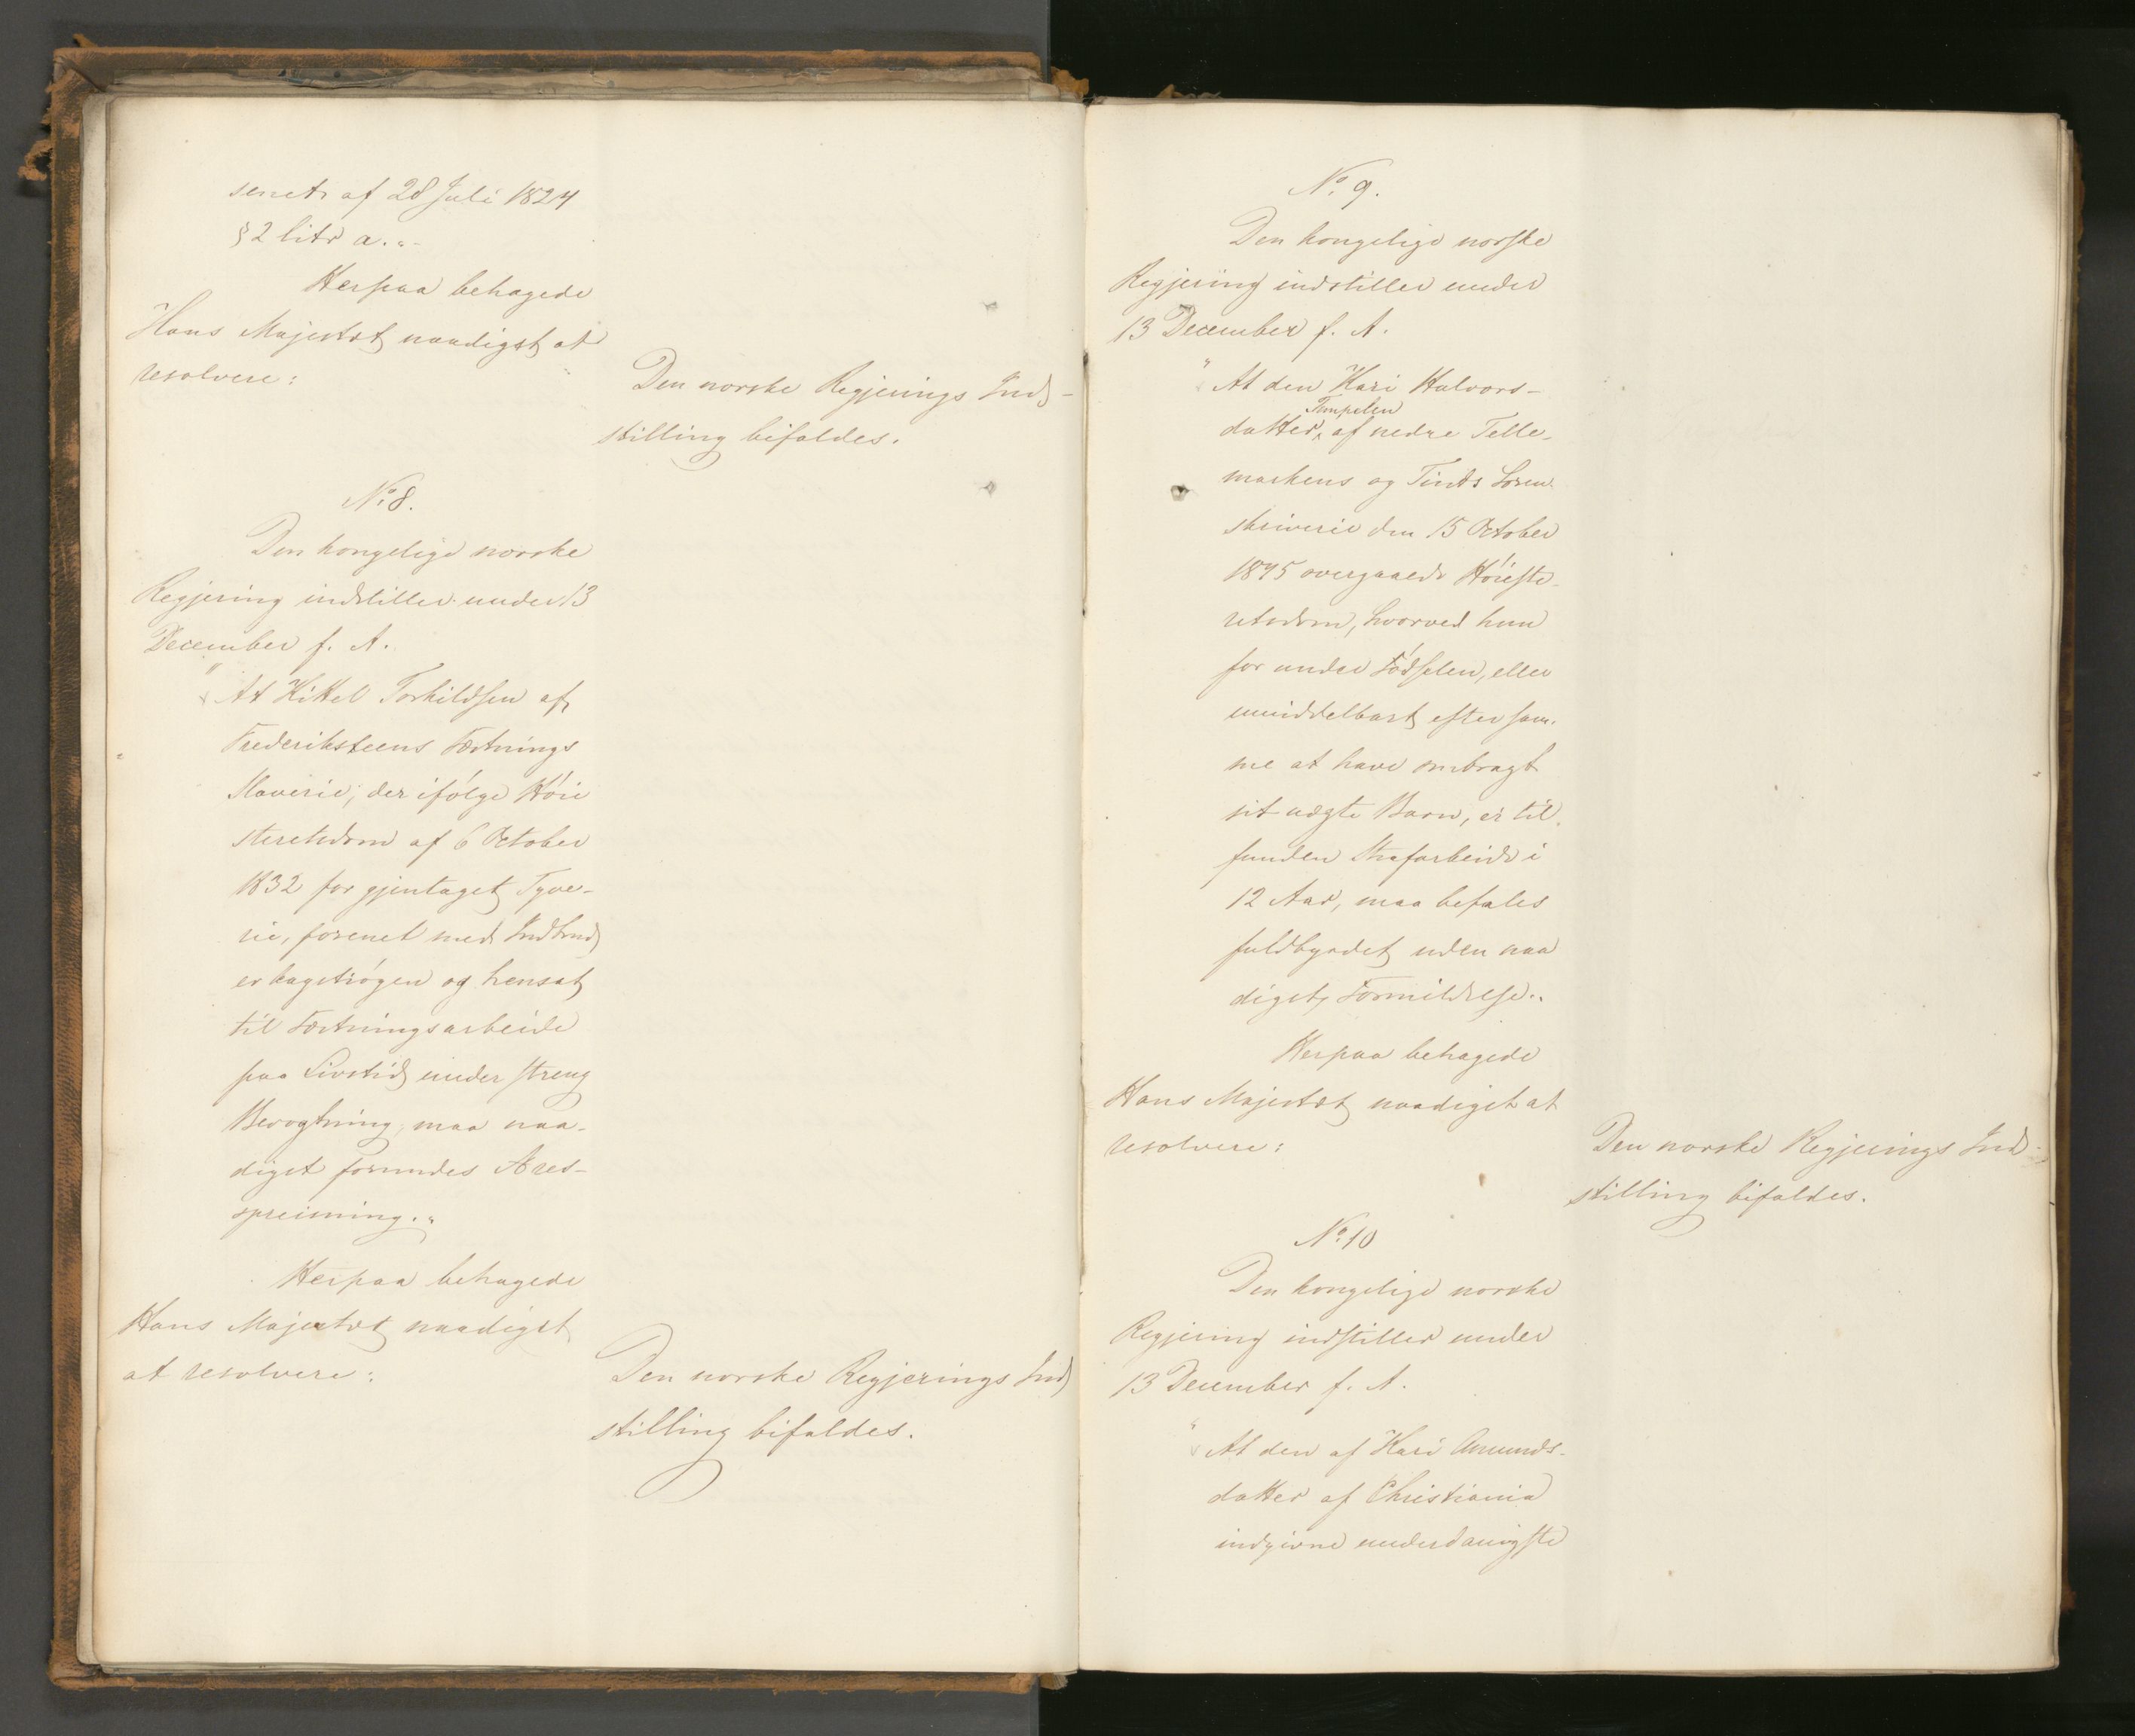 senets af 28 Juli 1824
§ 2 litr a."
Herpaa behagede
Hans Majestæt naadigst at
resolvere:
Den norske Regjerings Ind-
stilling bifaldes.
No 8.
Den kongelige norske
Regjering indstiller under 13
December f. A.
"At Kittel Torkildsen af
Frederiksteens Fæstnings
Slaverie, der ifölge Höie
steretsdom af 6 October
1832 for gjentaget Tyve-
rie, forenet med Indbrud
er kagströgen og hensat
til Fæstningsarbeide
paa Livstid under streng
Bevogtning, maa naa-
digst forundes Æres-
opreisning."
Herpaa behagede
Hans Majestæt naadigst
at resolvere:
Den norske Regjerings Ind
stilling bifaldes.
No 9.
Den kongelige norske
Regjering indstiller under
13 December f. A.
"At den Kari Halvors-
datter, af nedre Telle-
markens og Tinds Soren-
skriverie den 15 October
1845 overgaaede Höieste-
retsdom, hvorved hun
for under Födselen, eller
umiddelbart efter sam-
me at have ombragt
sit uægte Barn, er til-
funden Strafarbeide i
12 Aar, maa befales
fuldbyrdet uden naa
digst Formildelse."
Herpaa behagede
Hans Majestæt naadigst at
resolvere:
Den norske Regjerings Ind-
stilling bifaldes.
No 10
Den kongelige norske
Regjering indstiller under
13 December f. A.
"At den af Kari Amunds-
datter af Christiania
indgivne underdanigste